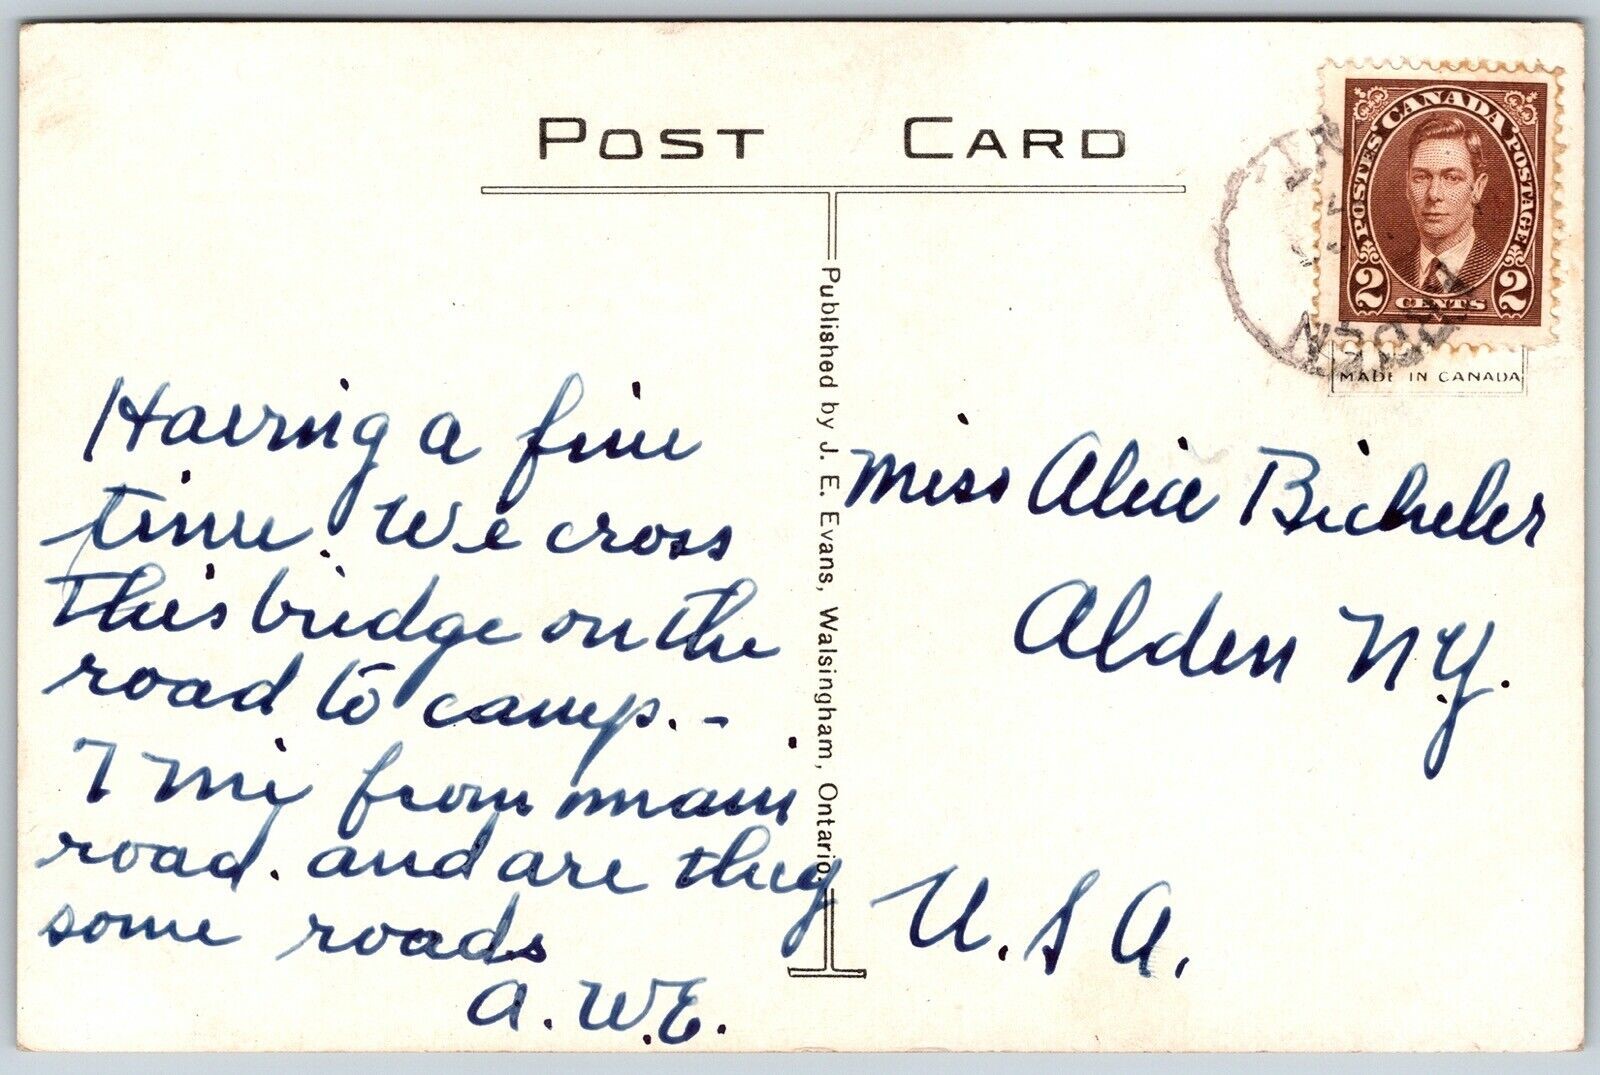 POST CARD
CANADA
POSTES POSTAGE
2 CENTS 2
MADE IN CANADA
Published by J. E. Evans, Walsingham, Ontario.
Having a fine
time. We cross
this bridge on the
road to camp. -
7 mi from main
road. and are they
some roads
A.W.E.
Miss Alice Bicheler
Alden NY.
U.S.A.